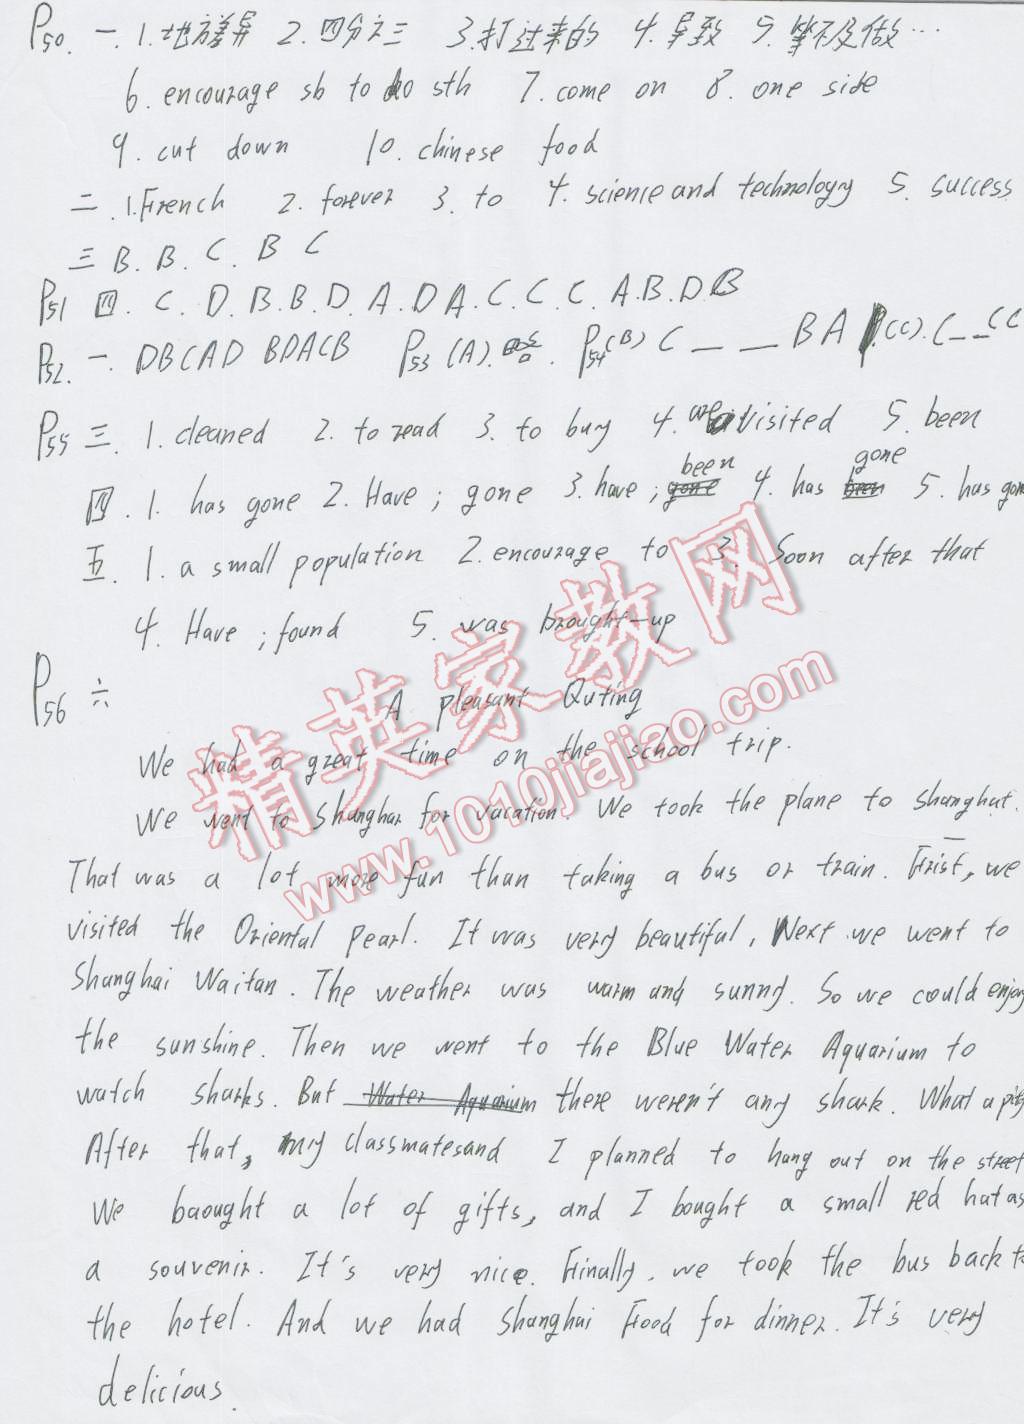 P50. 一. 1. 地方差异 2. 四分之三 3. 打过来的 4. 导致 5. 等不及做…
6. encourage sb to do sth 7. come on 8. one side
9. cut down 10. chinese food
二. 1. French 2. forever 3. to 4. science and technology 5. success
三 B. B. C. B C
P51 四. C. D. B. B. D. A. D A. C. C. C. A. B. D. B
P52. 一. DBCAD BDACB P53 (A). P54 (B) C _ _ BA (C). C _ _ CC
P55 三. 1. cleaned 2. to read 3. to buy 4. we visited 5. been
四. 1. has gone 2. Have; gone 3. have; been 4. has gone 5. has gone
五. 1. a small population 2. encourage to 3. Soon after that
4. Have; found 5. was brought-up
P56 六
A pleasant Outing
We had a great time on the school trip.
We went to Shanghai for vacation. We took the plane to Shanghai.
That was a lot more fun than taking a bus or train. Frist, we
visited the Oriental Pearl. It was very beautiful, Next we went to
Shanghai Waitan. The weather was warm and sunny. So we could enjoy
the sunshine. Then we went to the Blue Water Aquarium to
watch sharks. But Water Aquarium there weren't any shark. What a pity
After that, my classmates and I planned to hang out on the street
We baought a lot of gifts, and I bought a small red hat as
a souvenir. It's very nice. Finally, we took the bus back to
the hotel. And we had Shanghai Food for dinner. It's very
delicious.
精英家教网
www.1010jiajiao.com